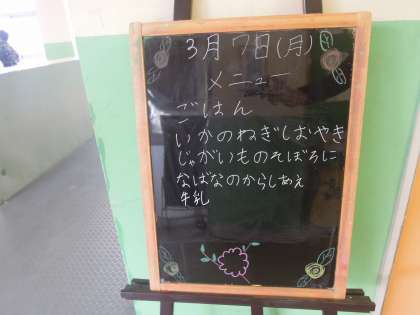 3月7日(月)
メニュー
ごはん
いかのねぎしおやき
じゃがいものそぼろに
なばなのからしあえ
牛乳